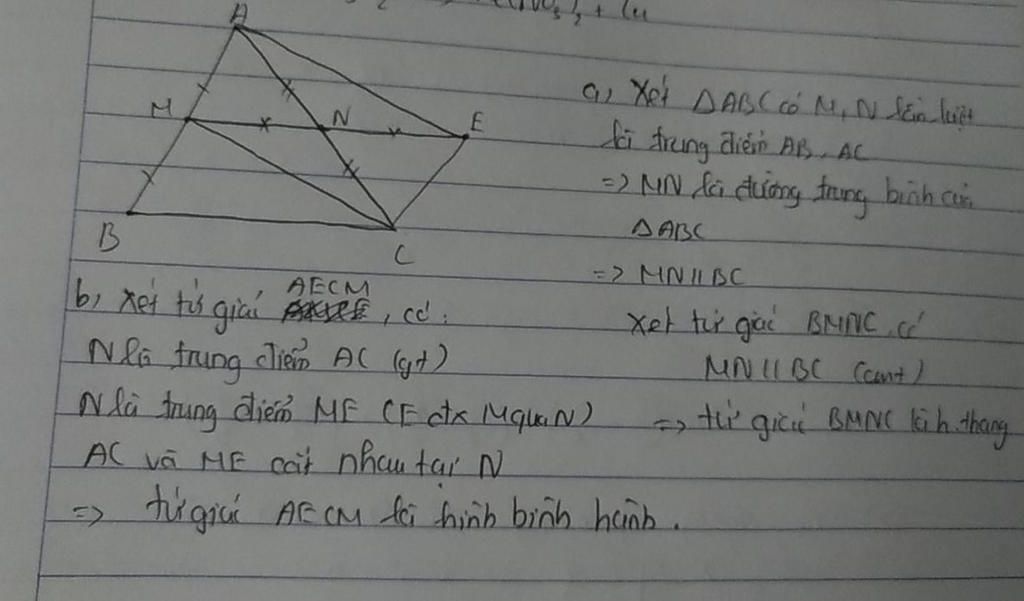 A
M
N
E
B
C
a, Xét ΔABC có M, N lần lượt
là trung điểm AB, AC
=> MN là đường trung bình của
ΔABC
=> MN // BC
Xét tứ giác BMNC có
MN // BC (cmt)
=> tứ giác BMNC là h.thang
b, Xét tứ giác AECM, có:
N là trung điểm AC (gt)
N là trung điểm ME (E đx M qua N)
AC và ME cắt nhau tại N
=> tứ giác AECM là hình bình hành.